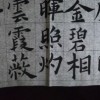 金碧相
暉照灼
雲霞蔽